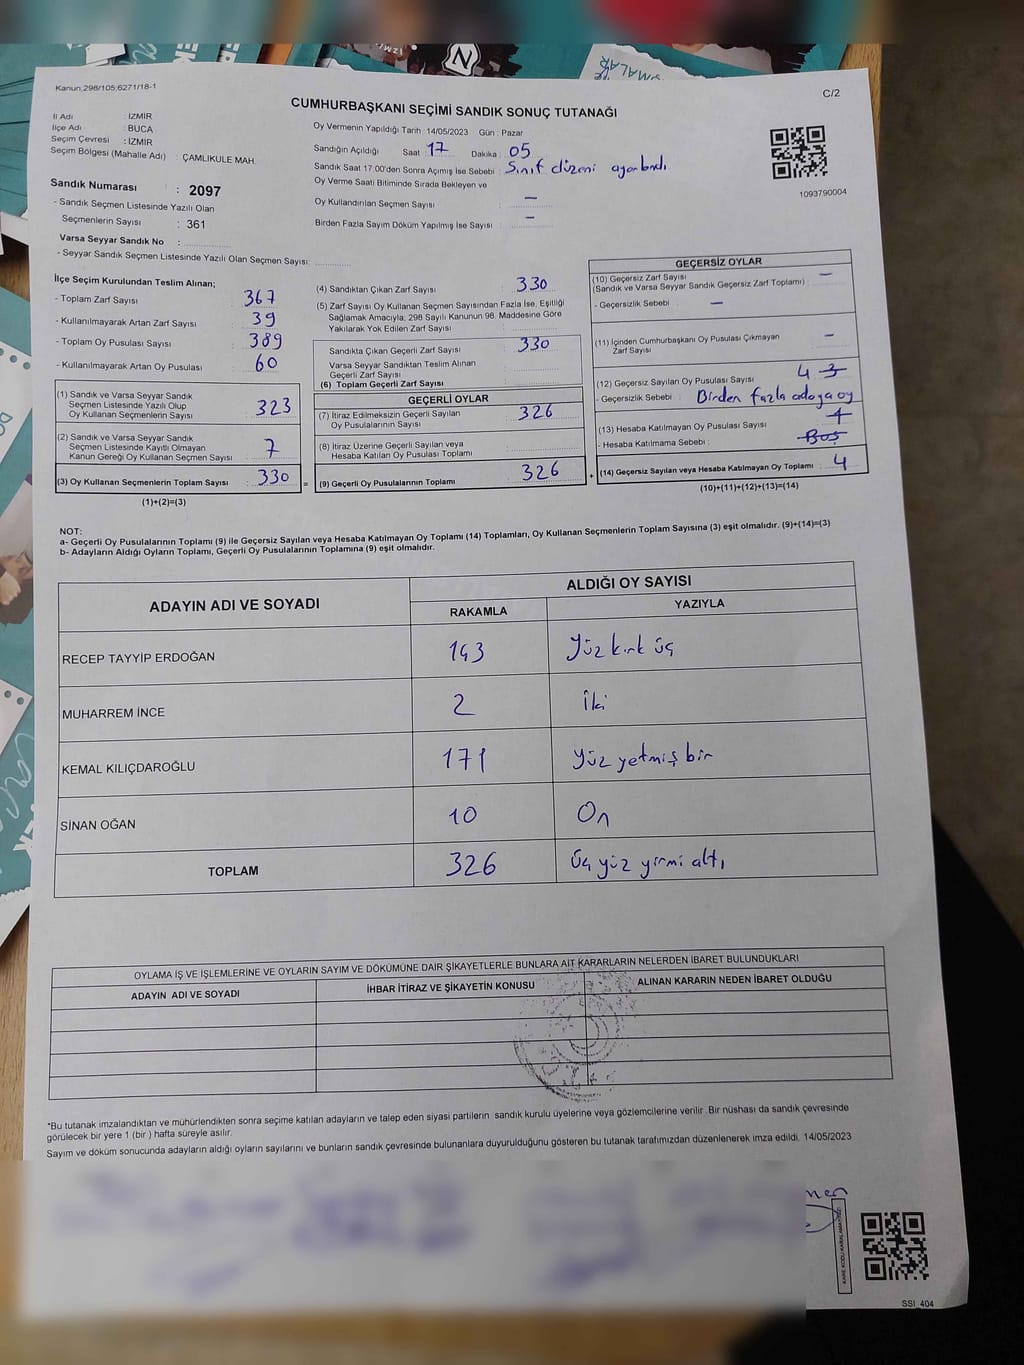 Kanun,298/105,6271/18-1
C/2
CUMHURBAŞKANI SEÇİMİ SANDIK SONUÇ TUTANAĞI
İl Adı : İZMİR
İlçe Adı : BUCA
Seçim Çevresi : İZMİR
Seçim Bölgesi (Mahalle Adı) : ÇAMLIKULE MAH.
Oy Vermenin Yapıldığı Tarih : 14/05/2023 Gün : Pazar
Sandığın Açıldığı Saat : 17 Dakika : 05
Sandık Saat 17:00'den Sonra Açımış İse Sebebi : Sınıf düzeni ayarlandı
Oy Verme Saati Bitiminde Sırada Bekleyen ve
Oy Kullandırılan Seçmen Sayısı : —
Birden Fazla Sayım Döküm Yapılmış İse Sayısı : —
1093790004
Sandık Numarası : 2097
- Sandık Seçmen Listesinde Yazılı Olan
Seçmenlerin Sayısı : 361
Varsa Seyyar Sandık No :
- Seyyar Sandık Seçmen Listesinde Yazılı Olan Seçmen Sayısı:
İlçe Seçim Kurulundan Teslim Alınan;
- Toplam Zarf Sayısı : 367
- Kullanılmayarak Artan Zarf Sayısı : 39
- Toplam Oy Pusulası Sayısı : 389
- Kullanılmayarak Artan Oy Pusulası : 60
(1) Sandık ve Varsa Seyyar Sandık
Seçmen Listesinde Yazılı Olup
Oy Kullanan Seçmenlerin Sayısı : 323
(2) Sandık ve Varsa Seyyar Sandık
Seçmen Listesinde Kayıtlı Olmayan
Kanun Gereği Oy Kullanan Seçmen Sayısı : 7
(3) Oy Kullanan Seçmenlerin Toplam Sayısı : 330
(1)+(2)=(3)
(4) Sandıktan Çıkan Zarf Sayısı : 330
(5) Zarf Sayısı Oy Kullanan Seçmen Sayısından Fazla İse, Eşitliği
Sağlamak Amacıyla; 298 Sayılı Kanunun 98. Maddesine Göre
Yakılarak Yok Edilen Zarf Sayısı :
Sandıkta Çıkan Geçerli Zarf Sayısı : 330
Varsa Seyyar Sandıktan Teslim Alınan
Geçerli Zarf Sayısı :
(6) Toplam Geçerli Zarf Sayısı :
GEÇERLİ OYLAR
(7) İtiraz Edilmeksizin Geçerli Sayılan
Oy Pusulasının Sayısı : 326
(8) İtiraz Üzerine Geçerli Sayılan veya
Hesaba Katılan Oy Pusulası Toplamı :
(9) Geçerli Oy Pusulalarının Toplamı : 326
GEÇERSİZ OYLAR
(10) Geçersiz Zarf Sayısı : —
(Sandık ve Varsa Seyyar Sandık Geçersiz Zarf Toplamı)
- Geçersizlik Sebebi : —
(11) İçinden Cumhurbaşkanı Oy Pusulası Çıkmayan
Zarf Sayısı : -
(12) Geçersiz Sayılan Oy Pusulası Sayısı : 4 3
- Geçersizlik Sebebi : Birden fazla adaya oy
(13) Hesaba Katılmayan Oy Pusulası Sayısı : 1
- Hesaba Katılmama Sebebi : Boş
(14) Geçersiz Sayılan veya Hesaba Katılmayan Oy Toplamı : 4
(10)+(11)+(12)+(13)=(14)
NOT:
a- Geçerli Oy Pusulalarının Toplamı (9) ile Geçersiz Sayılan veya Hesaba Katılmayan Oy Toplamı (14) Toplamları, Oy Kullanan Seçmenlerin Toplam Sayısına (3) eşit olmalıdır. (9)+(14)=(3)
b- Adayların Aldığı Oyların Toplamı, Geçerli Oy Pusulalarının Toplamına (9) eşit olmalıdır.
ADAYIN ADI VE SOYADI
ALDIĞI OY SAYISI
RAKAMLA YAZIYLA
RECEP TAYYİP ERDOĞAN 143 Yüz kırk üç
MUHARREM İNCE 2 İki
KEMAL KILIÇDAROĞLU 171 Yüz yetmiş bir
SİNAN OĞAN 10 On
TOPLAM 326 Üç yüz yirmi altı
OYLAMA İŞ VE İŞLEMLERİNE VE OYLARIN SAYIM VE DÖKÜMÜNE DAİR ŞİKAYETLERLE BUNLARA AİT KARARLARIN NELERDEN İBARET BULUNDUKLARI
ADAYIN ADI VE SOYADI İHBAR İTİRAZ VE ŞİKAYETİN KONUSU ALINAN KARARIN NEDEN İBARET OLDUĞU
*Bu tutanak imzalandıktan ve mühürlendikten sonra seçime katılan adayların ve talep eden siyasi partilerin sandık kurulu üyelerine veya gözlemcilerine verilir .Bir nüshası da sandık çevresinde
görülecek bir yere 1 (bir ) hafta süreyle asılır.
Sayım ve döküm sonucunda adayların aldığı oyların sayılarını ve bunların sandık çevresinde bulunanlara duyurulduğunu gösteren bu tutanak tarafımızdan düzenlenerek imza edildi. 14/05/2023
KARE KODU KARALAMAYINIZ
SSI_404